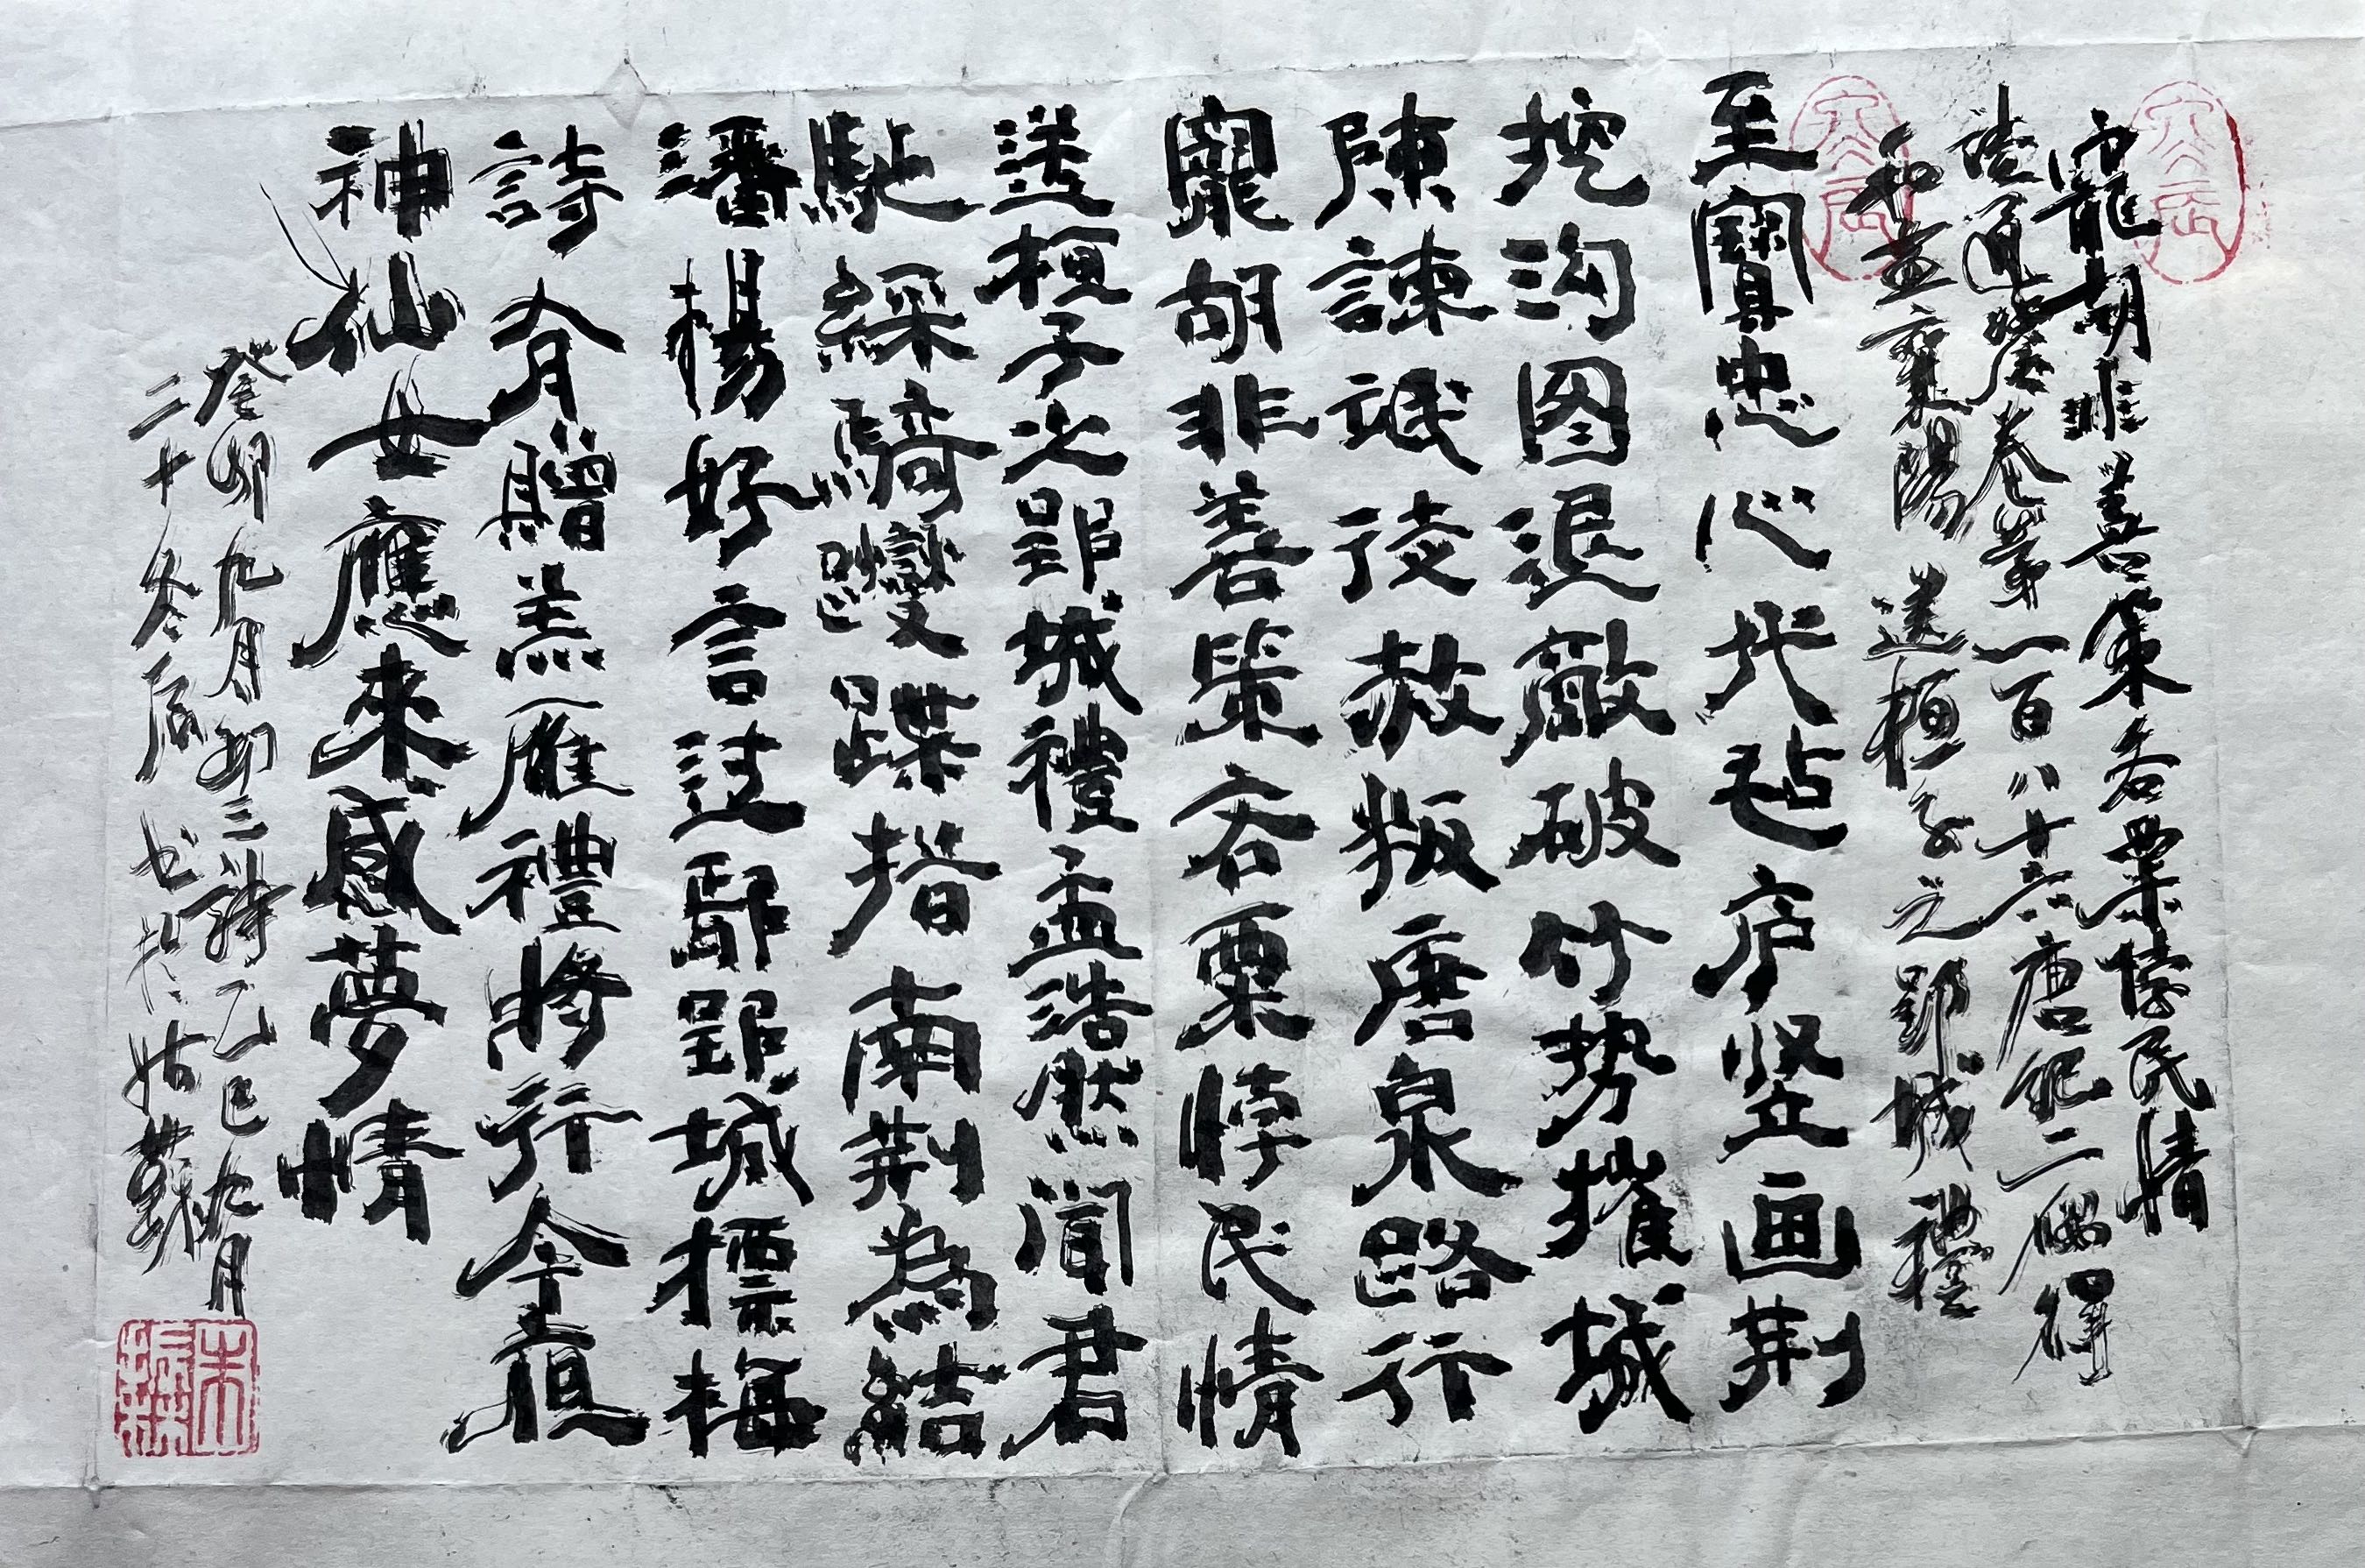 寵胡非善策吝粟悖民情
讀通鑒卷第一百八十六唐紀二偶得
和孟襄陽送桓子之郢城禮
至寶忠心代毡庐竖画荆
挖沟图退敵破竹势摧城
陳諫诋後赦叛唐泉路行
寵胡非善策吝粟悖民情
送桓子之郢城禮孟浩然聞君
馳綵騎躞蹀指南荆為結
潘楊好言过鄢郢城摽梅
詩有贈羔雁禮將行今夜
神仙女應來感夢情
癸卯九月初三詩乙巳九月
二十冬居书於姑蘇